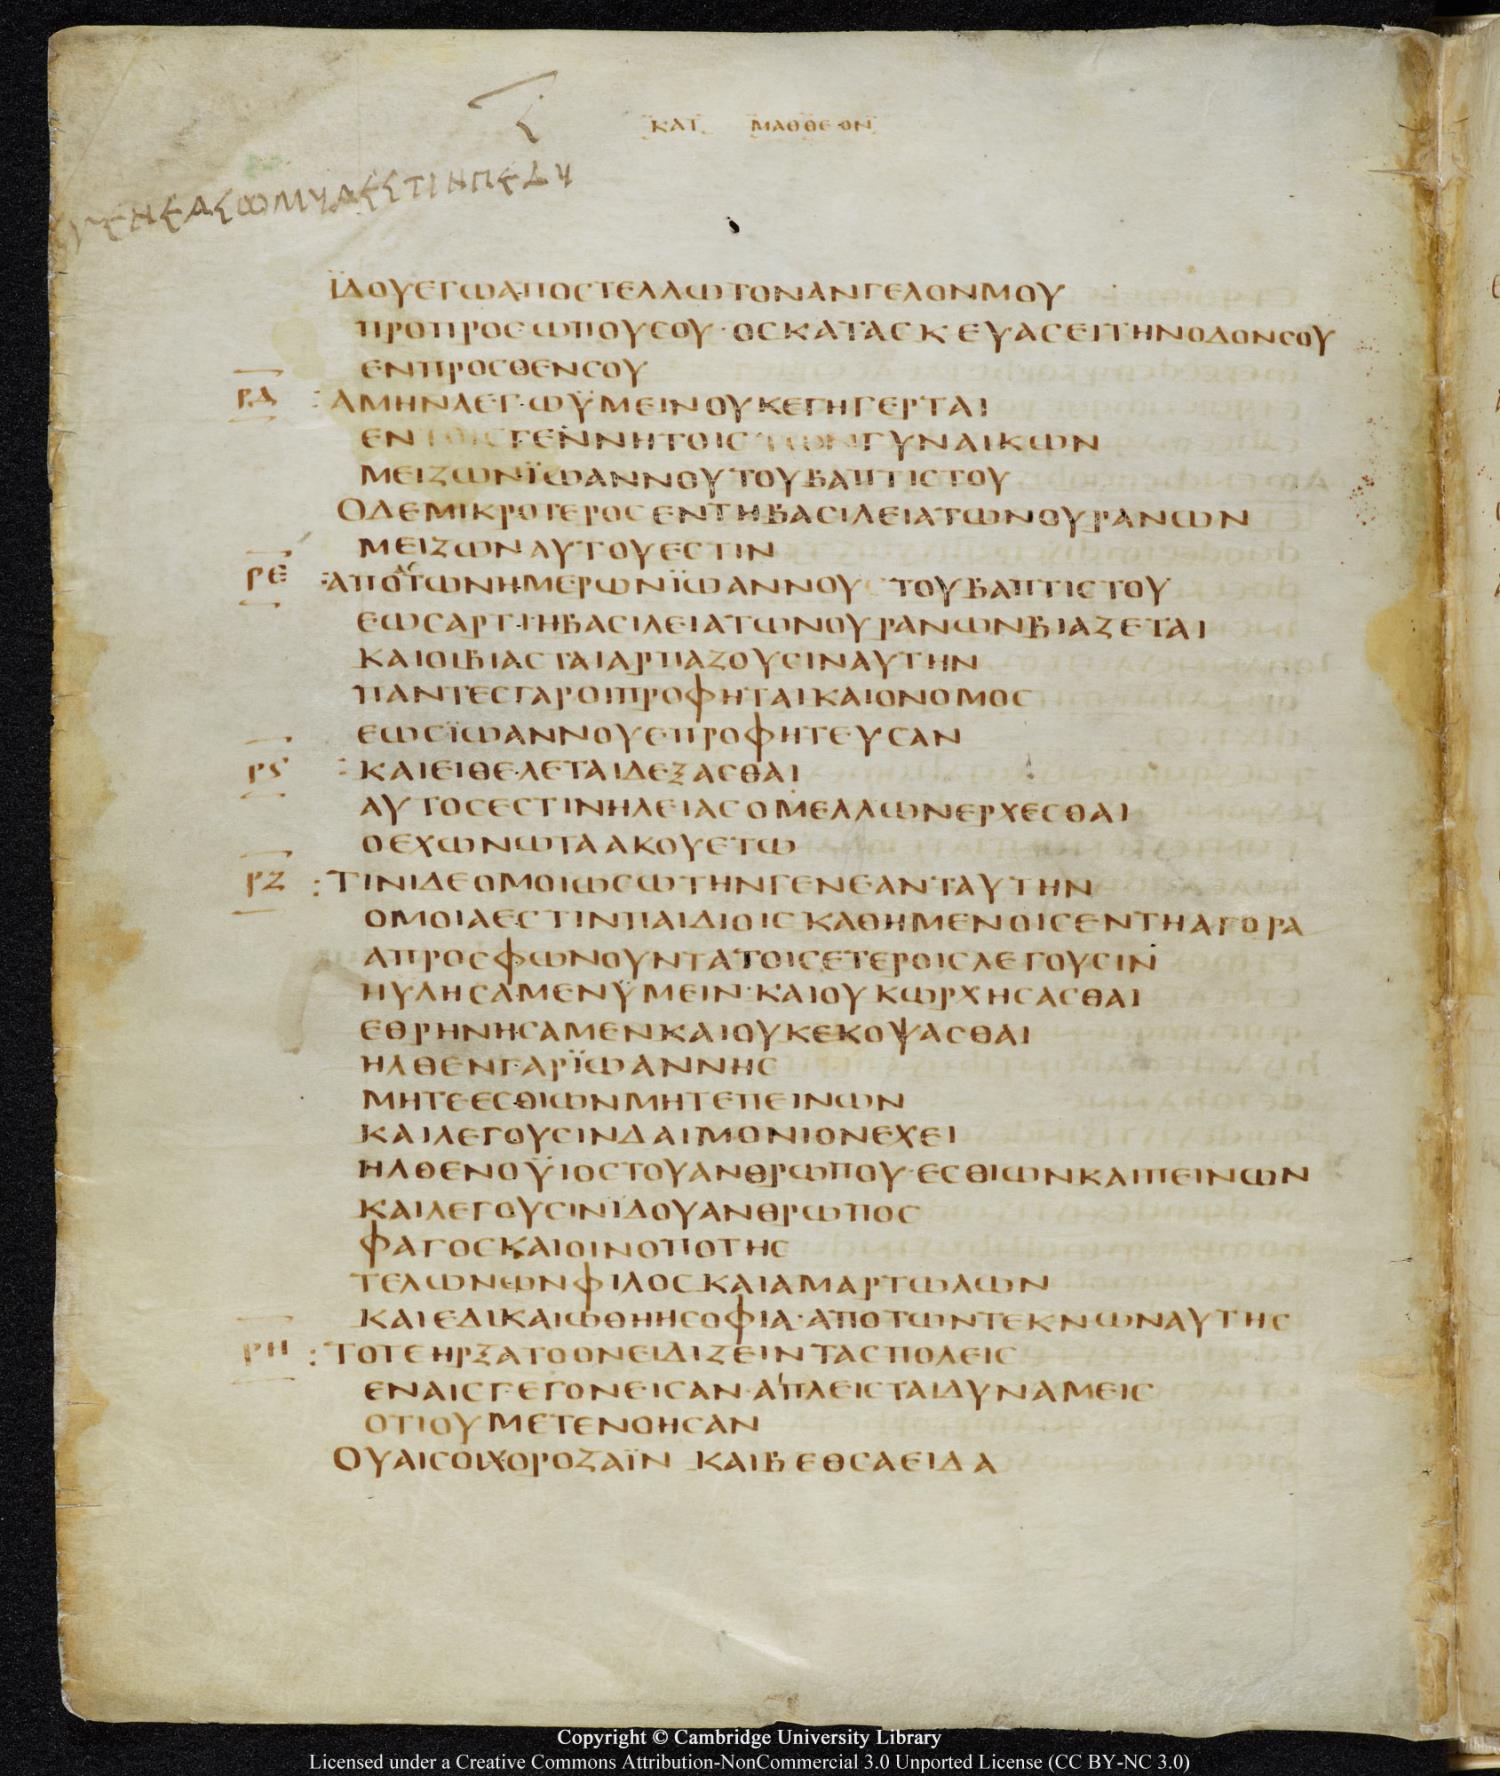 ΚΑΤ ΜΑΘΘΕΟΝ
ΪΔΟΥΕΓΩΑΠΟCΤΕΛΛΩΤΟΝΑΝΓΕΛΟΝΜΟΥ
ΠΡΟΠΡΟCΩΠΟΥCΟΥ·ΟCΚΑΤΑCΚΕΥΑCΕΙΤΗΝΟΔΟΝCΟΥ
ΕΝΠΡΟCΘΕΝCΟΥ
ΡΔ :ΑΜΗΝΛΕΓΩΫΜΕΙΝΟΥΚΕΓΗΓΕΡΤΑΙ
ΕΝΤΟΙCΓΕΝΝΗΤΟΙCΤΩΝΓΥΝΑΙΚΩΝ
ΜΕΙΖΩΝΪΩΑΝΝΟΥΤΟΥΒΑΠΤΙCΤΟΥ
ΟΔΕΜΙΚΡΟΤΕΡΟCΕΝΤΗΒΑCΙΛΕΙΑΤΩΝΟΥΡΑΝΩΝ
ΜΕΙΖΩΝΑΥΤΟΥΕCΤΙΝ
ΡΕ :ΑΠΟΤΩΝΗΜΕΡΩΝΪΩΑΝΝΟΥ ΤΟΥΒΑΠΤΙCΤΟΥ
ΕΩCΑΡΤΙΗΒΑCΙΛΕΙΑΤΩΝΟΥΡΑΝΩΝΒΙΑΖΕΤΑΙ
ΚΑΙΟΙΒΙΑCΤΑΙΑΡΠΑΖΟΥCΙΝΑΥΤΗΝ
ΠΑΝΤΕCΓΑΡΟΙΠΡΟΦΗΤΑΙΚΑΙΟΝΟΜΟC
ΕΩCΪΩΑΝΝΟΥΕΠΡΟΦΗΤΕΥCΑΝ
ΡϚ :ΚΑΙΕΙΘΕΛΕΤΑΙΔΕΞΑCΘΑΙ
ΑΥΤΟCΕCΤΙΝΗΛΕΙΑCΟΜΕΛΛΩΝΕΡΧΕCΘΑΙ
ΟΕΧΩΝΩΤΑΑΚΟΥΕΤΩ
ΡΖ :ΤΙΝΙΔΕΟΜΟΙΩCΩΤΗΝΓΕΝΕΑΝΤΑΥΤΗΝ
ΟΜΟΙΑΕCΤΙΝΠΑΙΔΙΟΙCΚΑΘΗΜΕΝΟΙCΕΝΤΗΑΓΟΡΑ
ΑΠΡΟCΦΩΝΟΥΝΤΑΤΟΙCΕΤΕΡΟΙCΛΕΓΟΥCΙΝ
ΗΥΛΗCΑΜΕΝΫΜΕΙΝ·ΚΑΙΟΥΚΩΡΧΗCΑCΘΑΙ
ΕΘΡΗΝΗCΑΜΕΝΚΑΙΟΥΚΕΚΟΨΑCΘΑΙ
ΗΛΘΕΝΓΑΡΪΩΑΝΝΗC
ΜΗΤΕΕCΘΙΩΝΜΗΤΕΠΕΙΝΩΝ
ΚΑΙΛΕΓΟΥCΙΝΔΑΙΜΟΝΙΟΝΕΧΕΙ
ΗΛΘΕΝΟΫΙΟCΤΟΥΑΝΘΡΩΠΟΥ·ΕCΘΙΩΝΚΑΙΠΕΙΝΩΝ
ΚΑΙΛΕΓΟΥCΙΝΙΔΟΥΑΝΘΡΩΠΟC
ΦΑΓΟCΚΑΙΟΙΝΟΠΟΤΗC
ΤΕΛΩΝΩΝΦΙΛΟCΚΑΙΑΜΑΡΤΩΛΩΝ
ΚΑΙΕΔΙΚΑΙΩΘΗΗCΟΦΙΑ·ΑΠΟΤΩΝΤΕΚΝΩΝΑΥΤΗC
ΡΗ :ΤΟΤΕΗΡΞΑΤΟΟΝΕΙΔΙΖΕΙΝΤΑCΠΟΛΕΙC
ΕΝΑΙCΓΕΓΟΝΕΙCΑΝ·ΑΙΠΛΕΙCΤΑΙΔΥΝΑΜΕΙC
ΟΤΙΟΥΜΕΤΕΝΟΗCΑΝ
ΟΥΑΙCΟΙΧΟΡΟΖΑΪΝ ΚΑΙΒΕΘCΑΕΙΔΑ
Copyright © Cambridge University Library
Licensed under a Creative Commons Attribution-NonCommercial 3.0 Unported License (CC BY-NC 3.0)